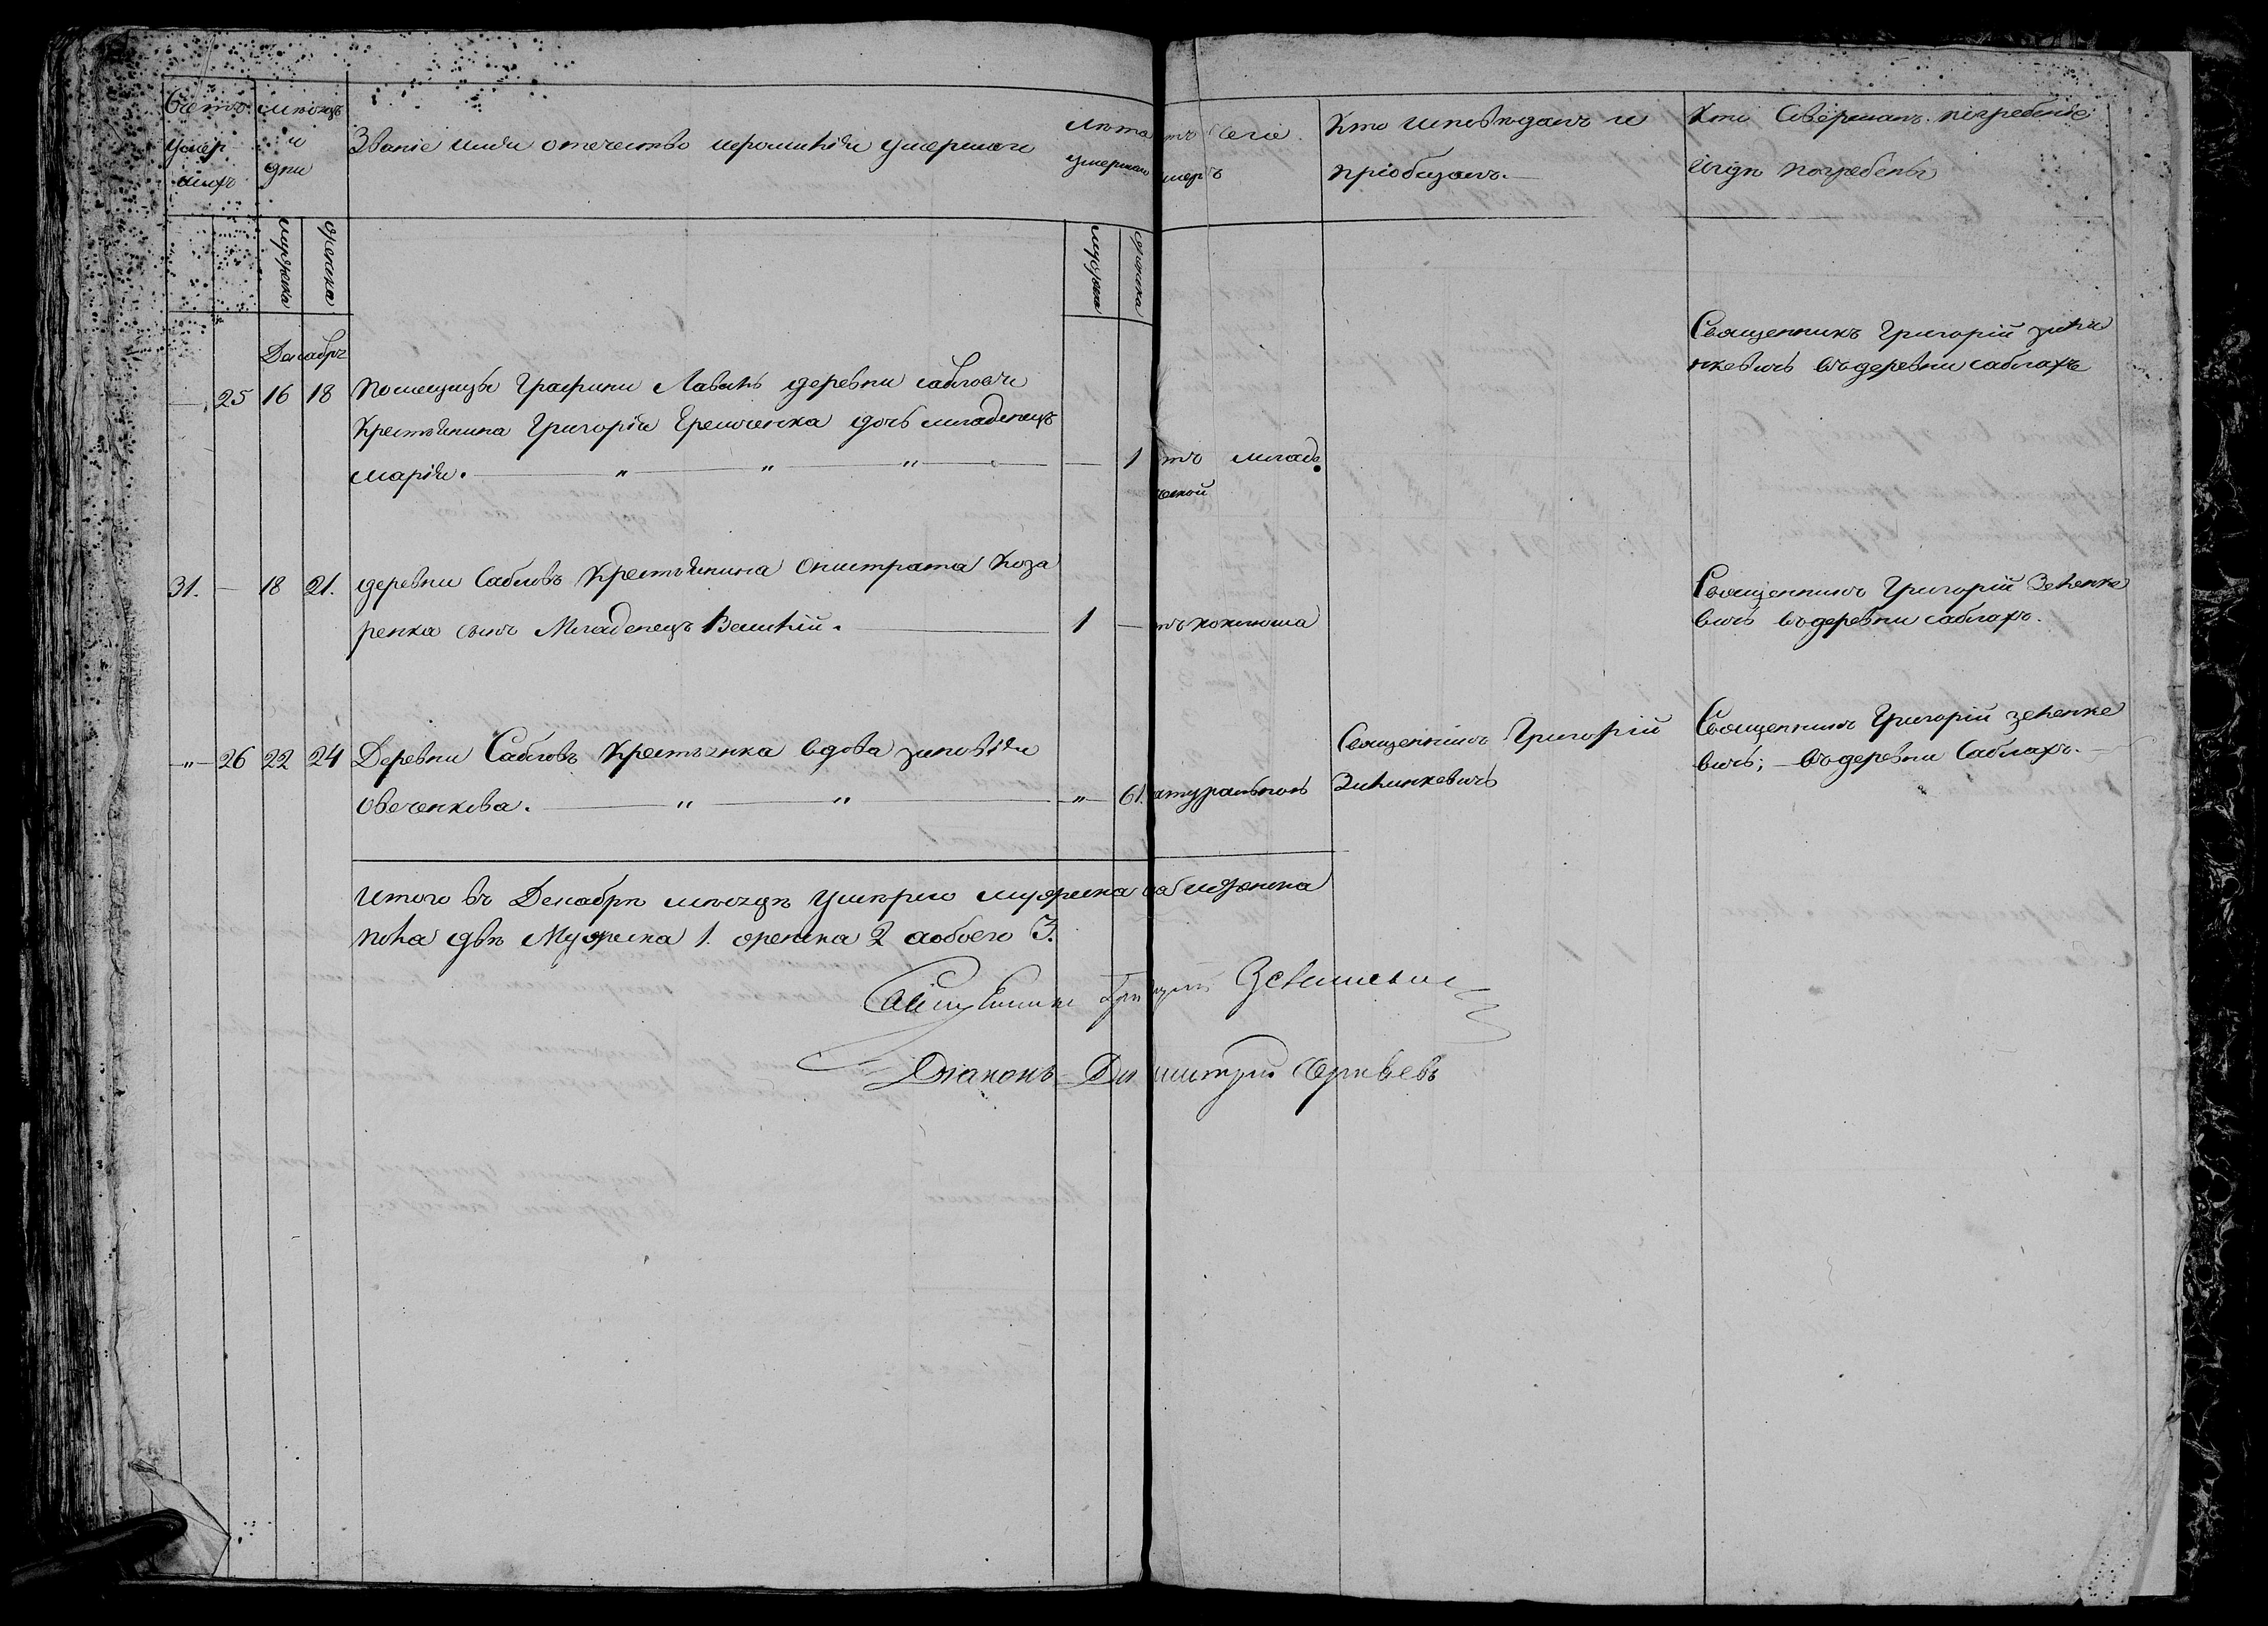 Счетъ умер шихъ
мѣсяцъ и дни
Званіе имя отечество ифамилія умершаго
лѣта умершаго
отъ чего умеръ
Кто исповѣдалъ и пріобщалъ.
Кто Совершалъ погребеніе
игдѣ погребены
мужеска
женска
мужеска
женска
Декабрь
25 16 18 Помещицы Графини Лаваль деревни Сабловъ
Крестьянина Григорія Еремченка дочь младенецъ
марія. 1 отъ младе
нческой
Священникъ Григорій зинки
нкевичъ въдеревни саблахъ
31. 18 21. деревни Сабловъ Крестьянина Онистрата Коза
ренка сынъ Младенецъ Василій. 1 отъ коклюша
Священникъ Григорій Зенке
вичъ въдеревни саблахъ.
26 22 24 Деревни Сабловъ Крестьянка вдова зиновія
Овеченкова. 61. натуральною
Священникъ Григорій
Зинкевичъ
Священникъ Григорій
вичъ; въдеревни Саблахъ.
Итого въ Декабрѣ мѣсяцѣ Умерло мужеска
пола двѣ Мужеска 1. женска 2 аобоего 3.
Священникъ Григорій
Діаконъ Димитрій